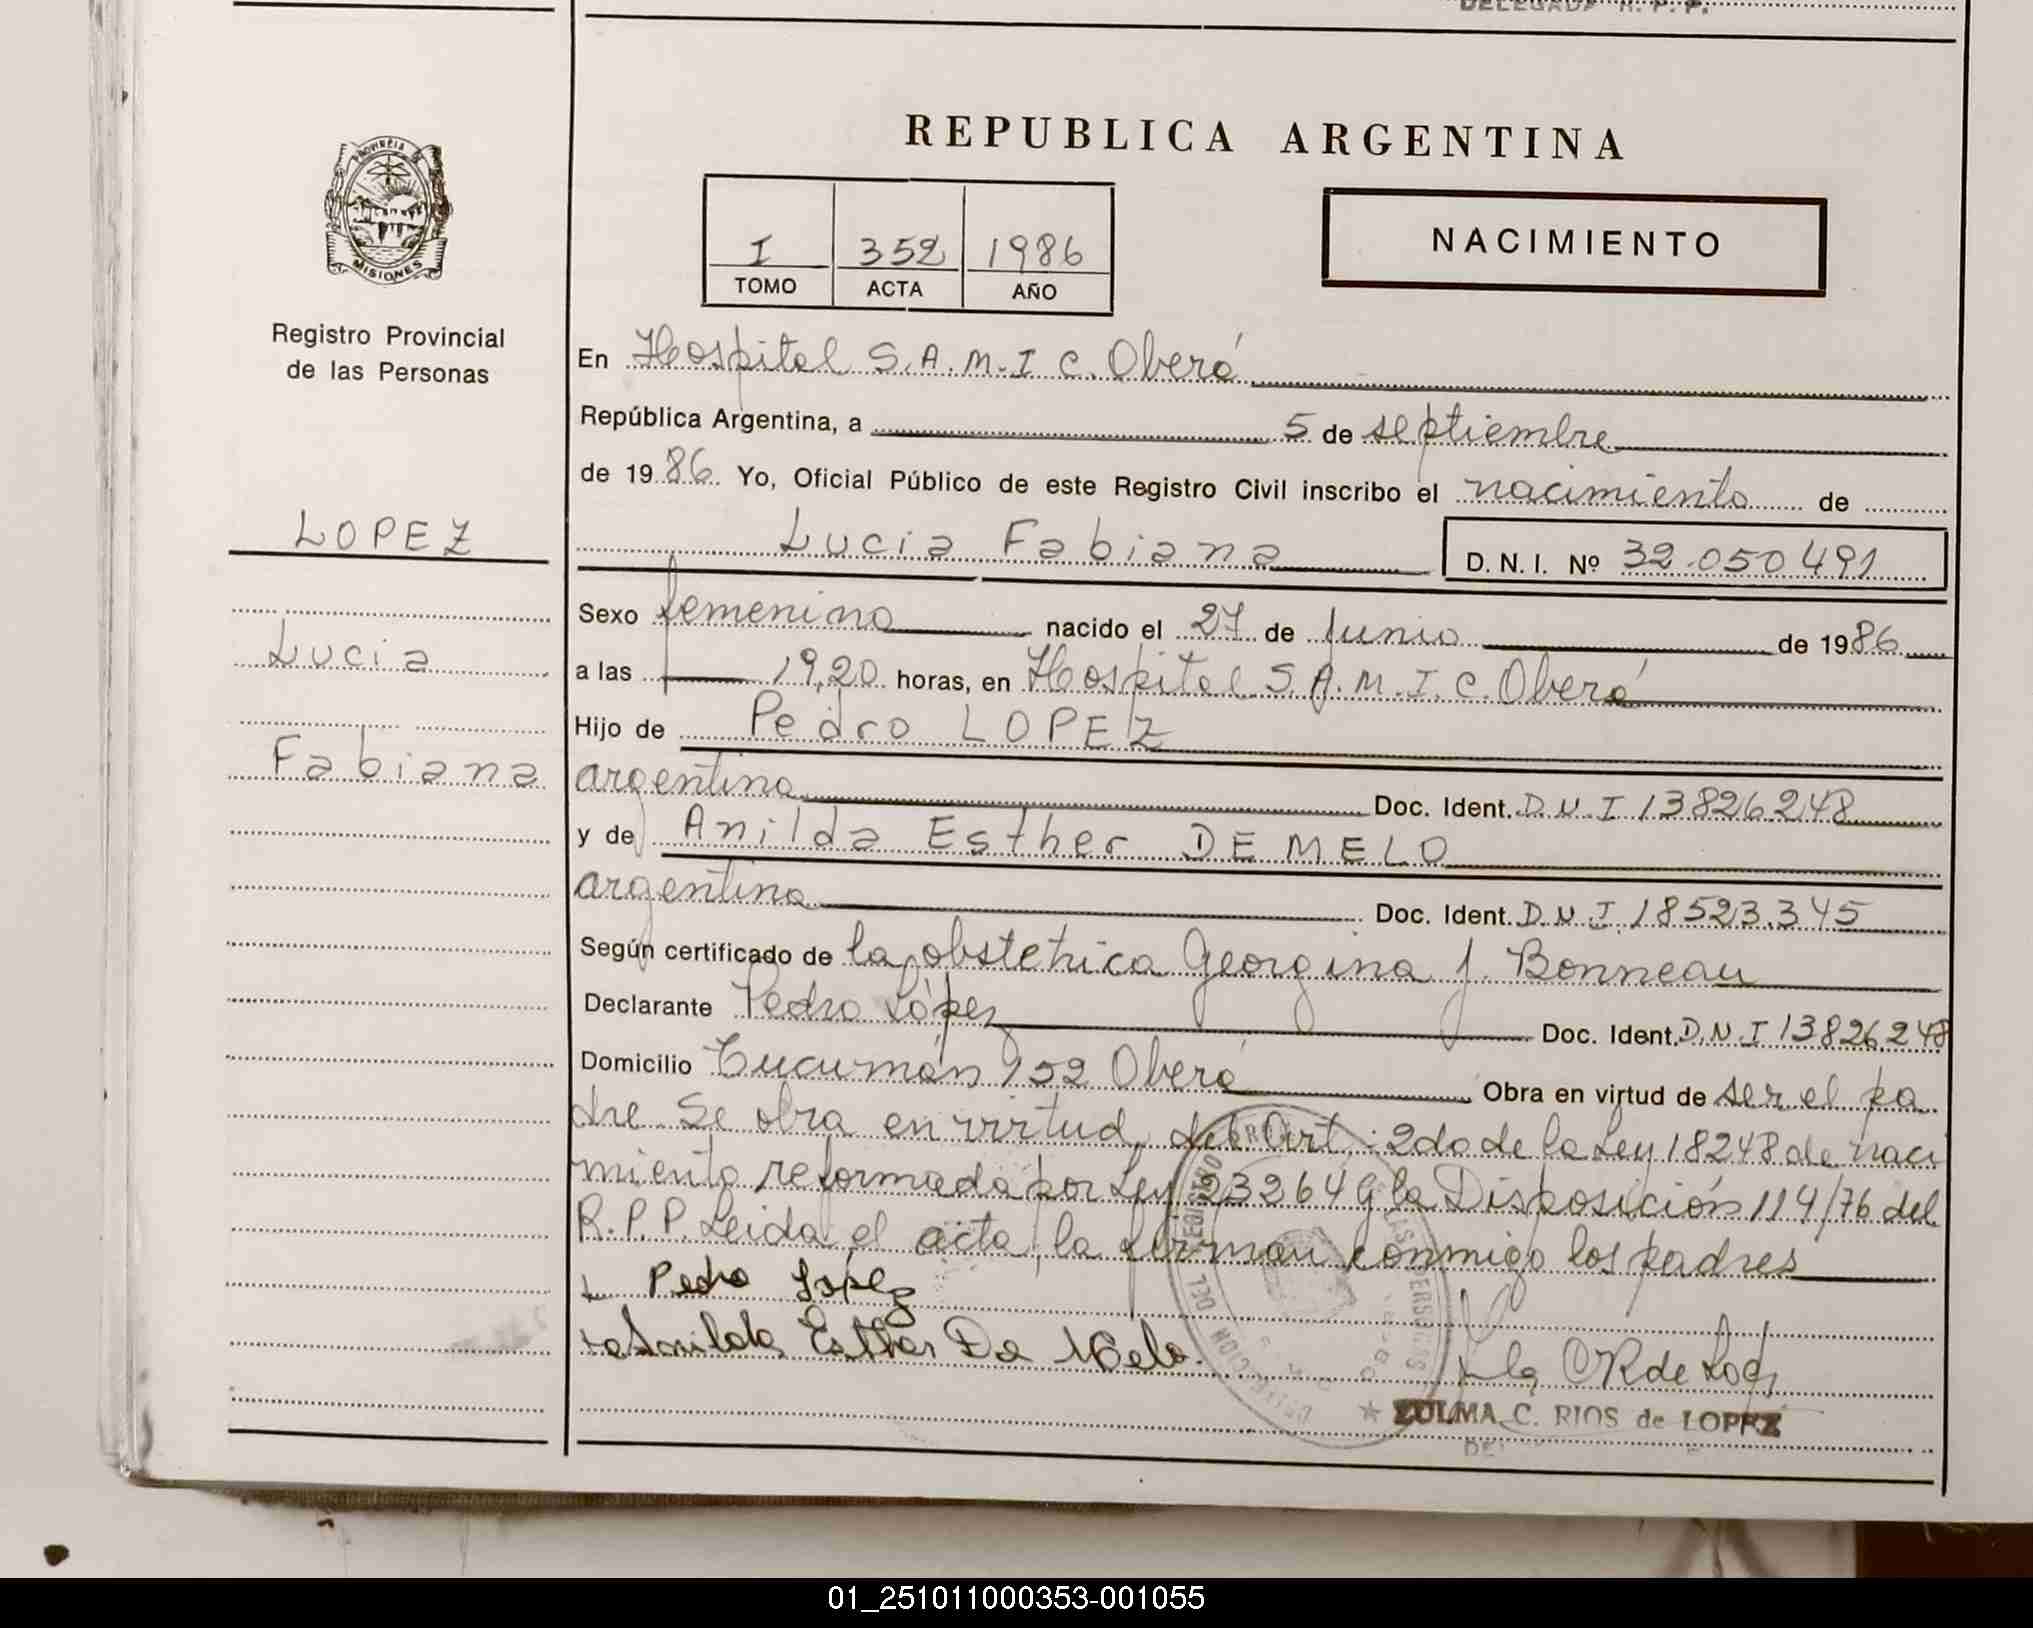 DELEGADA R. P. P.
REPUBLICA ARGENTINA
PROVINCIA DE
MISIONES
I 352 1986
TOMO ACTA AÑO
NACIMIENTO
Registro Provincial
de las Personas
En Hospital S.A.M.I C. Oberá
República Argentina, a 5 de septiembre
de 1986 Yo, Oficial Público de este Registro Civil inscribo el nacimiento de
LOPEZ
Lucia Fabiana D. N. I. Nº 32.050491
Sexo femenino nacido el 27 de Junio de 1986
Lucia
a las 19,20 horas, en Hospital S.A.M.I.C. Oberá
Hijo de Pedro LOPEZ
Fabiana
argentino Doc. Ident. D.N.I 13826248
y de Anilda Esther DE MELO
argentina Doc. Ident. D.N.I 18523.345
Según certificado de la obstetrica Georgina J. Bonneau
Declarante Pedro López Doc. Ident. D.N.I 13826248
Domicilio Tucumán 952 Oberá Obra en virtud de ser el pa
dre Se obra en virtud del Art.: 2do de la Ley 18248 de naci
miento reformada por Ley 23264 y la Disposición 114/76 del
R.P.P. Leida el acta, la firman conmigo los padres
Pedro López
Anilda Esther De Melo.
ZULMA C. RIOS de LOPEZ
01_251011000353-001055